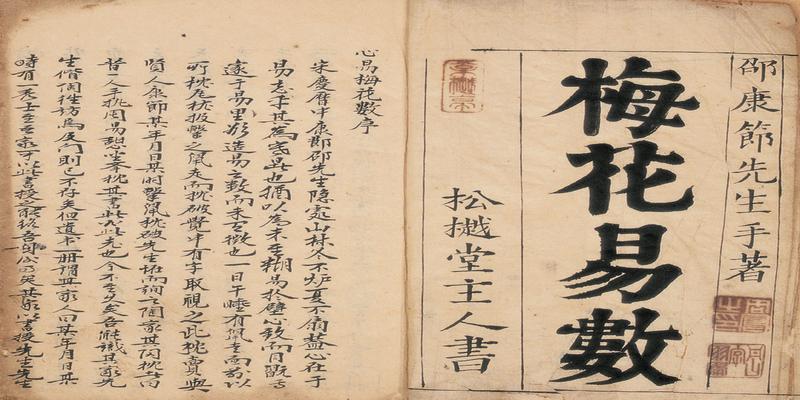 邵康節先生手著
梅花易數
松樾堂主人書
心易梅花數序
宋慶曆中康節邵先生隱處山林冬不炉夏不扇蓋心在于
易忘乎其為寒暑也猶以為未至糊易於壁心致而目翫焉
邃于易理欲造易之數而未有徵也一日午睡有鼠走而前以
所枕瓦枕投擊之鼠走而枕破覺中有字取視之此枕賣與
賢人康節某年月日某時擊鼠枕破先生怪而詢之陶家其陶枕者曰
昔一人手執周易憩坐舉枕其書此必此老也今不至久矣吾能識其家先
生偕陶往訪焉及門則已不存矣但遺書一冊謂其家人曰某年月日某
時有一秀士至吾家可以此書授之能終吾矣其家以書授先生先生